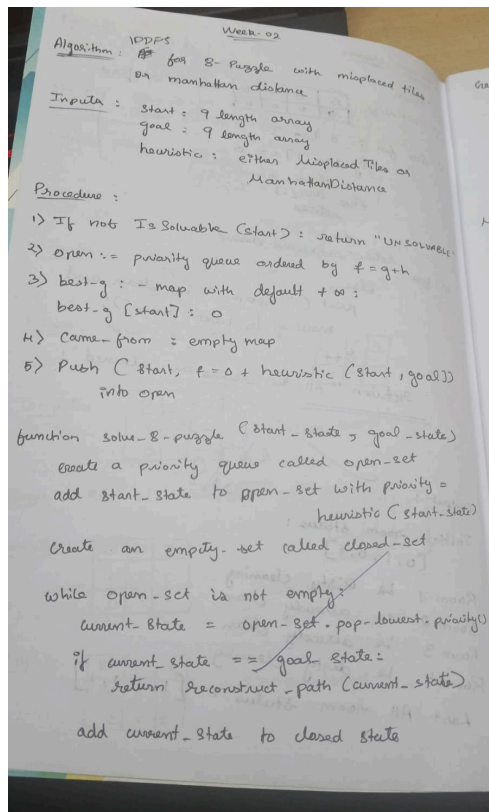 Week-02
IDDFS
Algorithm : for 8-Puzzle with misplaced tiles
or manhattan distance
Inputs : start : 9 length array
goal : 9 length array
heuristic : either Misplaced Tiles or
ManhattanDistance
Procedure :
1) If not Is Solvable (start) : return "UNSOLVABLE"
2) open := priority queue ordered by f = g+h
3) best-g : - map with default + ∞ :
best-g [start] : 0
4) Came-from : empty map
5) Push ( Start, f = 0 + heuristic (start, goal))
into open
function solve-8-puzzle (start_state, goal_state)
create a priority queue called open-set
add start_state to open-set with priority =
heuristic (start_state)
create an empty-set called closed-set
while open-set is not empty:
current_state = open-set.pop-lowest.priority()
if current_state == goal state:
return reconstruct_path (current_state)
add current_state to closed state